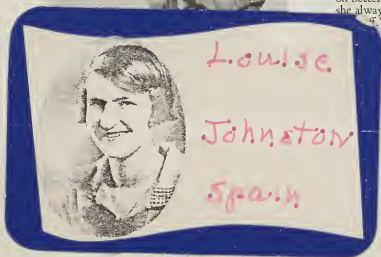 she alway
Louise
Johnston
Spain